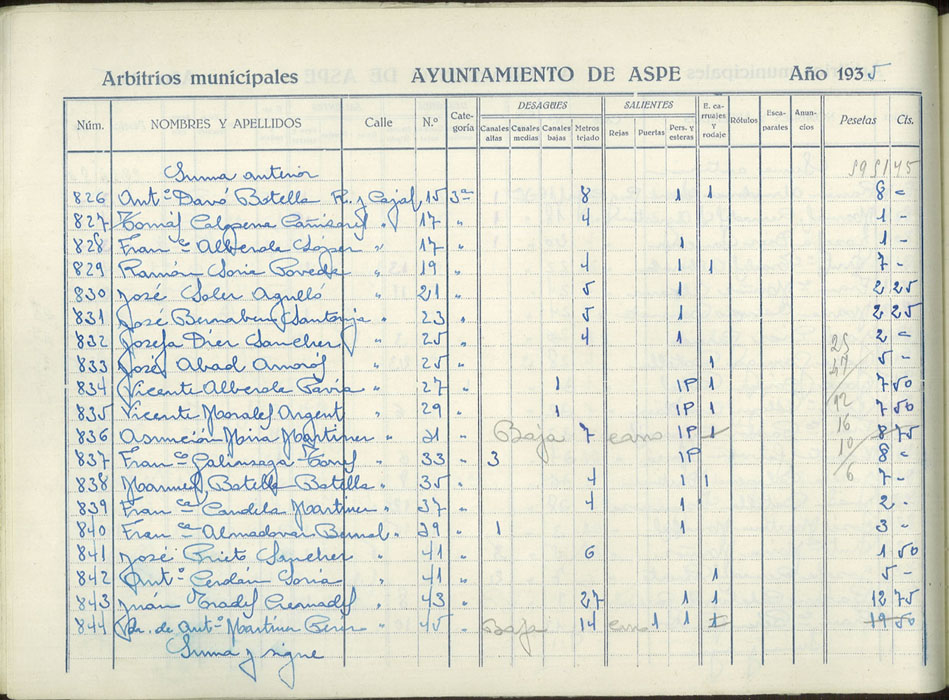 Arbitrios municipales AYUNTAMIENTO DE ASPE Año 1935
Núm. NOMBRES Y APELLIDOS Calle N.º Categoría DESAGUES Canales altas Canales medias Canales bajas Metros tejado SALIENTES Rejas Puertas Pers. y esteras E. carruajes y rodaje Rótulos Escaparates Anuncios Pesetas Cts.
Suma anterior 5951 45
826 Antº Davó Botella R. y Cajal 15 3ª 8 1 1 8 -
827 Tomás Calpena Cañizares " 17 " 4 1 -
828 Franco Alberola Lopez " 17 " 1 1 -
829 Ramón Soria Poveda " 19 " 4 1 1 7 -
830 José Soler Agulló " 21 " 5 1 2 25
831 José Bernabeu Santonja " 23 " 5 1 2 25
832 Josefa Dier Sanchez " 25 " 4 1 2 -
833 José Abad Amorós " 25 " 1 5 -
834 Vicente Alberola Pavia " 27 " 1 1P 1 7 50
835 Vicente Morales Argent " 29 " 1 1P 1 7 50
836 Asunción Mira Martinez " 31 " Baja 7 1P 1 8 75
837 Franca Galinsaga Torres 33 " 3 1P 8 -
838 Manuel Botella Botella " 35 " 4 1 1 7 -
839 Franca Candela Martinez " 37 " 4 1 2 -
840 Franca Almodovar Bernal " 39 " 1 1 3 -
841 José Prieto Sanchez " 41 " 6 1 50
842 Antº Cerdán Soria " 41 " 1 5 -
843 Juán Prades Cremades " 43 " 27 1 1 12 75
844 de Antº Martinez Perez " 45 " Baja 14 1 1 1 19 50
Suma y sigue
25
47
12
16
10
6